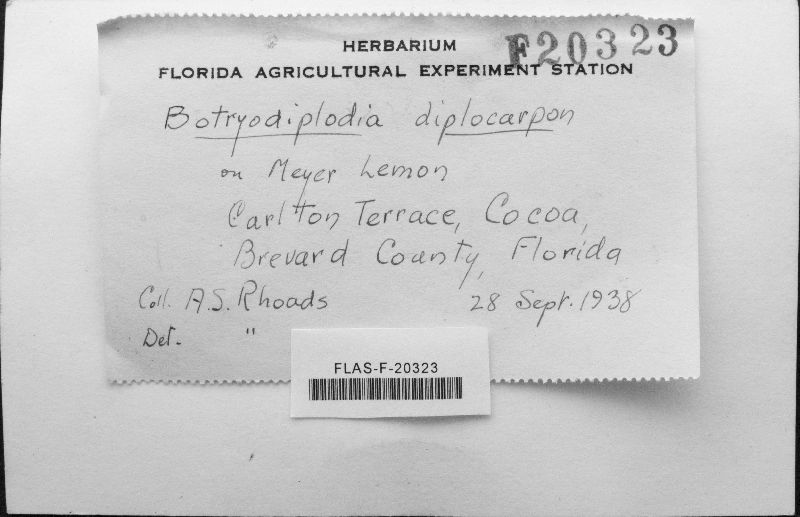 HERBARIUM F20323
FLORIDA AGRICULTURAL EXPERIMENT STATION
Botryodiplodia diplocarpon
on Meyer Lemon
Carlton Terrace, Cocoa,
Brevard County, Florida
Coll. A.S. Rhoads 28 Sept. 1938
Det. "
FLAS-F-20323